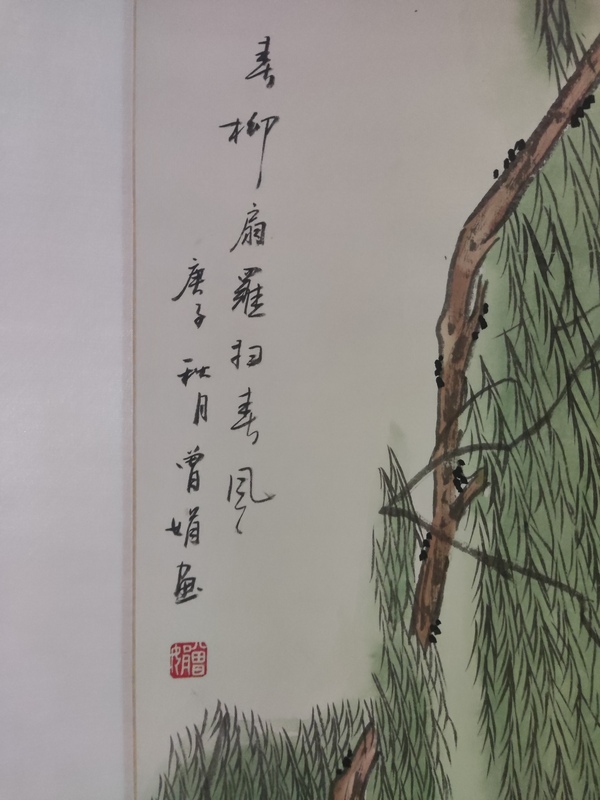 春柳扇罗扫春风
庚子秋月曾娟画
曾娟